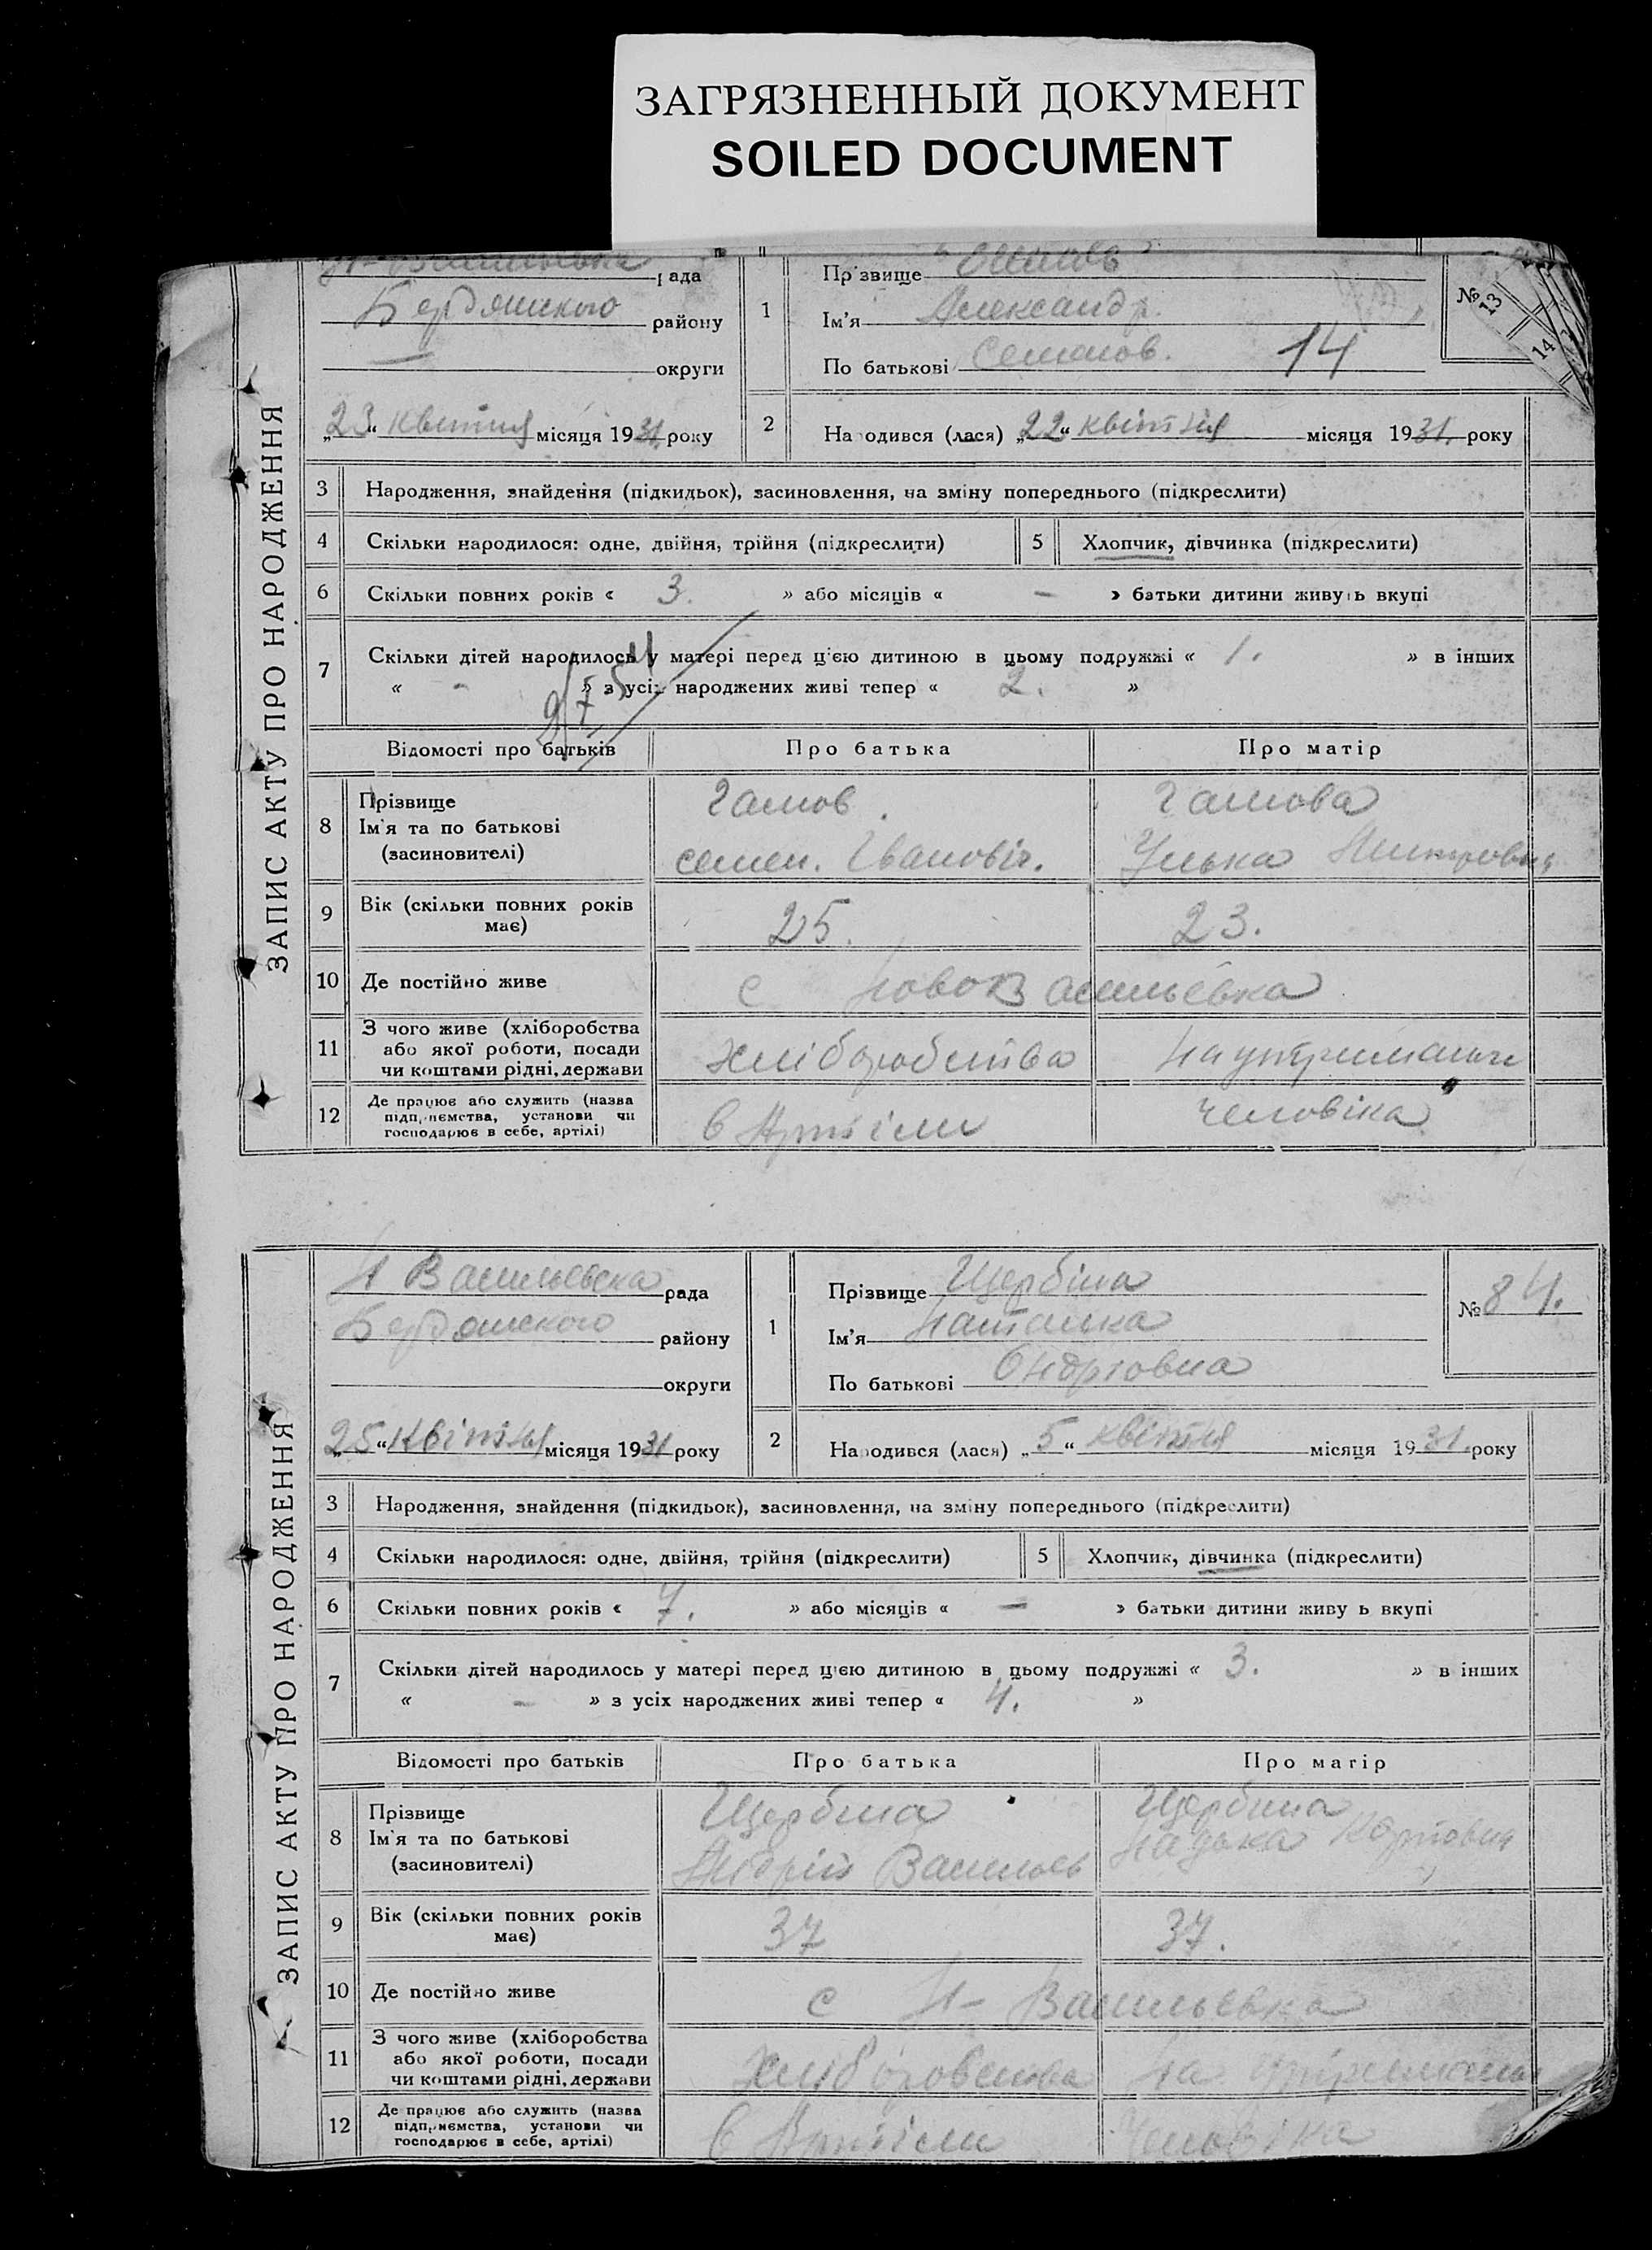 ЗАГРЯЗНЕННЫЙ ДОКУМЕНТ
SOILED DOCUMENT
ЗАПИС АКТУ ПРО НАРОДЖЕННЯ
рада
Бердянського району
— округи
„23“ квітня місяця 1931 року
1
Прізвище
Ім’я Александр.
По батькові Семенов. 14
№
13
14
2
Народився (лася) „22“ квітня місяця 1931. року
3 Народження, знайдення (підкидьок), засиновлення, на зміну попереднього (підкреслити)
4 Скільки народилося: одне, двійня, трійня (підкреслити)
5 Хлопчик, дівчинка (підкреслити)
6 Скільки повних років « 3. » або місяців « — » батьки дитини живуть вкупі
7 Скільки дітей народилось у матері перед цією дитиною в цьому подружжі « 1. » в інших
« - » з усіх народжених живі тепер « 2. »
Відомості про батьків Про батька Про матір
8 Прізвище
Ім’я та по батькові
(засиновителі)
Гамов
семен. Іванович.
Гамова
Улька
9 Вік (скільки повних років
має)
25.
23.
10 Де постійно живе
с Ново Васильевка
11 З чого живе (хліборобства
або якої роботи, посади
чи коштами рідні, держави
Хліборобства
на утриманні
12 Де працює або служить (назва
підприємства, установи чи
господарює в себе, артілі)
в Артіли
человіка
ЗАПИС АКТУ ПРО НАРОДЖЕННЯ
Н Васильевска рада
Бердянского району
округи
„25“ квітня місяця 1931 року
1
Прізвище Щербіна
Ім’я Наталка
По батькові
№ 84.
2
Народився (лася) „5“ квітня місяця 1931. року
3 Народження, знайдення (підкидьок), засиновлення, на зміну попереднього (підкреслити)
4 Скільки народилося: одне, двійня, трійня (підкреслити)
5 Хлопчик, дівчинка (підкреслити)
6 Скільки повних років « 7. » або місяців « — » батьки дитини живуть вкупі
7 Скільки дітей народилось у матері перед цією дитиною в цьому подружжі « 3. » в інших
« - » з усіх народжених живі тепер « 4. »
Відомості про батьків Про батька Про матір
8 Прізвище
Ім’я та по батькові
(засиновителі)
Щербина
Андрій Васильев
Щербина
9 Вік (скільки повних років
має)
37
37.
10 Де постійно живе
с Н- Васильевка
11 З чого живе (хліборобства
або якої роботи, посади
чи коштами рідні, держави
Хліборобства
на
12 Де працює або служить (назва
підприємства, установи чи
господарює в себе, артілі)
в Артіли